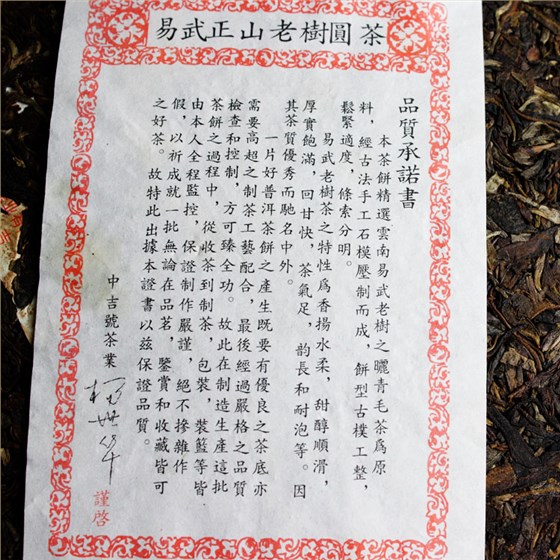 易武正山老樹圓茶
品質承諾書
本茶餅精選雲南易武老樹之曬青毛茶爲原
料，經古法手工石模壓制而成，餅型古樸工整，
鬆緊適度，條索分明。
易武老樹茶之特性爲香揚水柔，甜醇順滑，
厚實飽滿，回甘快，茶氣足，韵長和耐泡等。因
其茶質優秀而馳名中外。
一片好普洱茶餅之產生既要有優良之茶底亦
需要高超之制茶工藝配合，最後經過嚴格之品質
檢查和控制，方可臻全功。故此在制造生產這批
茶餅之過程中，從收茶到制茶，包裝，裝籃等皆
由本人全程監控，保證制作嚴謹，絕不摻雜作
假，以祈成就一批無論在品茗，鑒賞和收藏皆可
之好茶。故特此出據本證書以茲保證品質。
中吉號茶業
謹啓